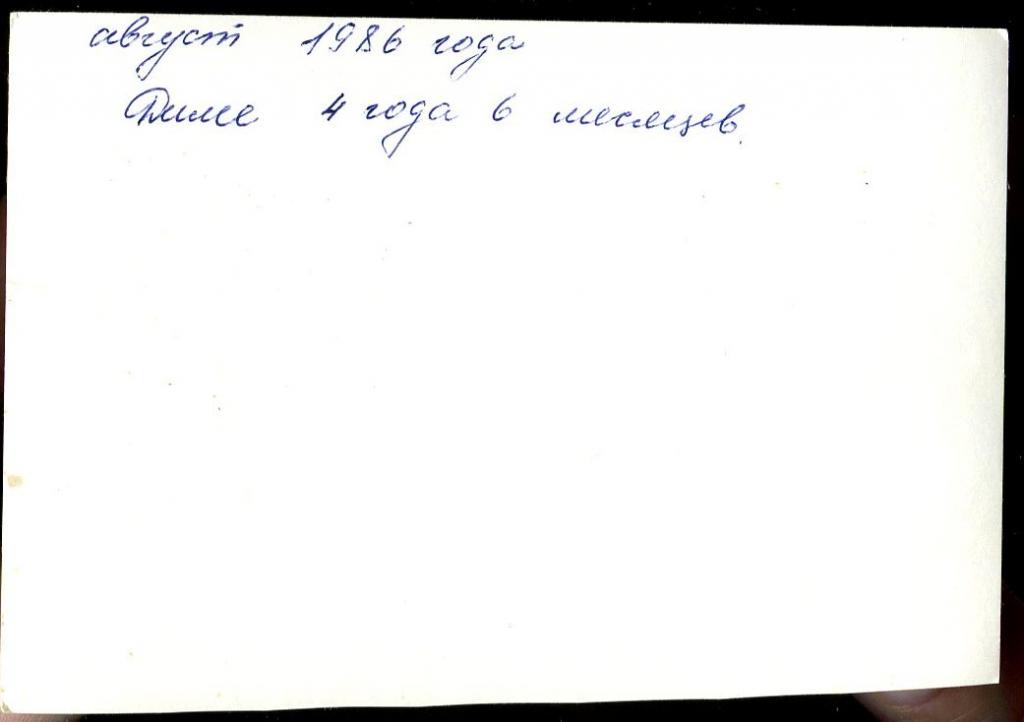 август 1986 года
Диме 4 года 6 месяцев.